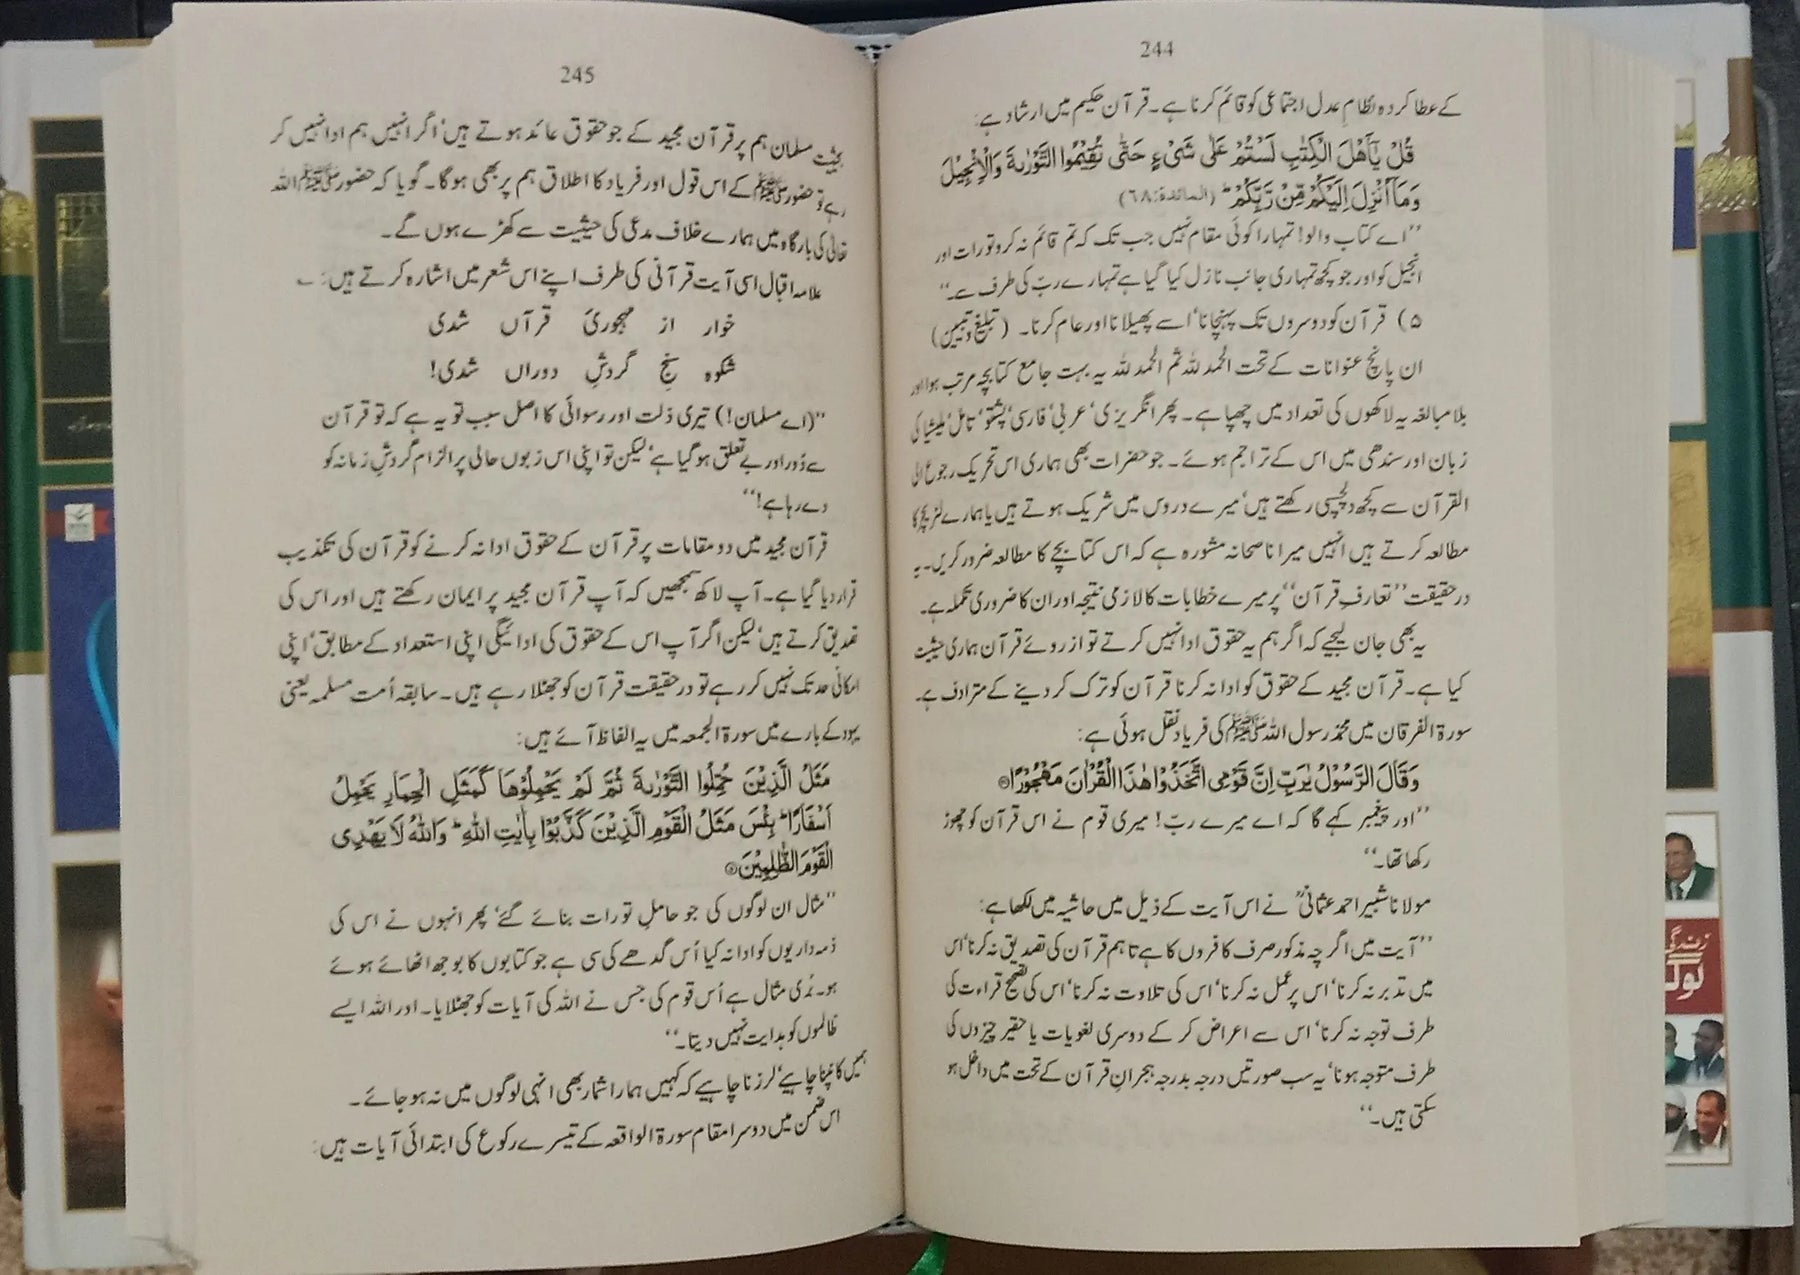 244
کے عطا کردہ نظامِ عدل اجتماعی کو قائم کرنا ہے۔ قرآن حکیم میں ارشاد ہے:
قُلْ يٰٓاَهْلَ الْكِتٰبِ لَسْتُمْ عَلٰى شَىْءٍ حَتّٰى تُقِيْمُوا التَّوْرٰىةَ وَالْاِنْجِيْلَ
وَمَآ اُنْزِلَ اِلَيْكُمْ مِّنْ رَّبِّكُمْ ؕ (المائدۃ:۶۸)
’’اے کتاب والو! تمہارا کوئی مقام نہیں جب تک کہ تم قائم نہ کرو تورات اور
انجیل کو اور جو کچھ تمہاری جانب نازل کیا گیا ہے تمہارے ربّ کی طرف سے۔‘‘
۵) قرآن کو دوسروں تک پہنچانا‘ اسے پھیلانا اور عام کرنا۔ (تبلیغ و تبیین)
ان پانچ عنوانات کے تحت الحمد للہ ثم الحمد للہ یہ بہت جامع کتابچہ مرتب ہوا اور
بلا مبالغہ یہ لاکھوں کی تعداد میں چھپا ہے۔ پھر انگریزی‘ عربی‘ فارسی‘ پشتو‘ تامل‘ ملیشیا کی
زبان اور سندھی میں اس کے تراجم ہوئے۔ جو حضرات بھی ہماری اس تحریک رجوع الی
القرآن سے کچھ دلچسپی رکھتے ہیں‘ میرے دروس میں شریک ہوتے ہیں یا ہمارے لٹریچر کا
مطالعہ کرتے ہیں انہیں میرا ناصحانہ مشورہ ہے کہ اس کتابچے کا مطالعہ ضرور کریں۔ یہ
درحقیقت ’’تعارفِ قرآن‘‘ پر میرے خطابات کا لازمی نتیجہ اور ان کا ضروری تکملہ ہے۔
یہ بھی جان لیجیے کہ اگر ہم یہ حقوق ادا نہیں کرتے تو از روئے قرآن ہماری حیثیت
کیا ہے۔ قرآن مجید کے حقوق کو ادا نہ کرنا قرآن کو ترک کر دینے کے مترادف ہے۔
سورۃ الفرقان میں محمد رسول اللہ ﷺ کی فریاد نقل ہوئی ہے:
وَقَالَ الرَّسُوْلُ يٰرَبِّ اِنَّ قَوْمِى اتَّخَذُوْا هٰذَا الْقُرْاٰنَ مَهْجُوْرًا
’’اور پیغمبر کہے گا کہ اے میرے ربّ! میری قوم نے اس قرآن کو چھوڑ
رکھا تھا۔‘‘
مولانا شبیر احمد عثمانیؒ نے اس آیت کے ذیل میں حاشیہ میں لکھا ہے:
’’آیت میں اگرچہ مذکور صرف کافروں کا ہے تاہم قرآن کی تصدیق نہ کرنا‘ اس
میں تدبر نہ کرنا‘ اس پر عمل نہ کرنا‘ اس کی تلاوت نہ کرنا‘ اس کی تصحیح قراءت کی
طرف توجہ نہ کرنا‘ اس سے اعراض کر کے دوسری لغویات یا حقیر چیزوں کی
طرف متوجہ ہونا‘ یہ سب صورتیں درجہ بدرجہ ہجرانِ قرآن کے تحت میں داخل ہو
سکتی ہیں۔‘‘
245
بحیثیت مسلمان ہم پر قرآن مجید کے جو حقوق عائد ہوتے ہیں‘ اگر انہیں ہم ادا نہیں کر
رہے تو حضور ﷺ کے اس قول اور فریاد کا اطلاق ہم پر بھی ہوگا۔ گویا کہ حضور ﷺ اللہ
تعالیٰ کی بارگاہ میں ہمارے خلاف مدعی کی حیثیت سے کھڑے ہوں گے۔
علامہ اقبال اسی آیت قرآنی کی طرف اپنے اس شعر میں اشارہ کرتے ہیں: ؂
خوار از مہجوریٔ قرآں شدی
شکوہ سنجِ گردشِ دوراں شدی!
’’(اے مسلمان!) تیری ذلت اور رسوائی کا اصل سبب تو یہ ہے کہ تو قرآن
سے دُور اور بے تعلق ہو گیا ہے‘ لیکن تو اپنی اس زبوں حالی پر الزام گردشِ زمانہ کو
دے رہا ہے!‘‘
قرآن مجید میں دو مقامات پر قرآن کے حقوق ادا نہ کرنے کو قرآن کی تکذیب
قرار دیا گیا ہے۔ آپ لاکھ سمجھیں کہ آپ قرآن مجید پر ایمان رکھتے ہیں اور اس کی
تصدیق کرتے ہیں‘ لیکن اگر آپ اس کے حقوق کی ادائیگی اپنی استعداد کے مطابق‘ اپنی
امکانی حد تک نہیں کر رہے تو درحقیقت قرآن کو جھٹلا رہے ہیں۔ سابقہ اُمت مسلمہ یعنی
یہود کے بارے میں سورۃ الجمعہ میں یہ الفاظ آئے ہیں:
مَثَلُ الَّذِيْنَ حُمِّلُوا التَّوْرٰىةَ ثُمَّ لَمْ يَحْمِلُوْهَا كَمَثَلِ الْحِمَارِ يَحْمِلُ
اَسْفَارًا ؕ بِئْسَ مَثَلُ الْقَوْمِ الَّذِيْنَ كَذَّبُوْا بِاٰيٰتِ اللّٰهِ ؕ وَاللّٰهُ لَا يَهْدِى
الْقَوْمَ الظّٰلِمِيْنَ
’’مثال ان لوگوں کی جو حاملِ تورات بنائے گئے‘ پھر انہوں نے اس کی
ذمہ داریوں کو ادا نہ کیا اُس گدھے کی سی ہے جو کتابوں کا بوجھ اٹھائے ہوئے
ہو۔ بُری مثال ہے اُس قوم کی جس نے اللہ کی آیات کو جھٹلایا۔ اور اللہ ایسے
ظالموں کو ہدایت نہیں دیتا۔‘‘
ہمیں کانپنا چاہیے‘ لرزنا چاہیے کہ کہیں ہمارا شمار بھی انہی لوگوں میں نہ ہو جائے۔
اس ضمن میں دوسرا مقام سورۃ الواقعہ کے تیسرے رکوع کی ابتدائی آیات ہیں:
زندگی
لوگ